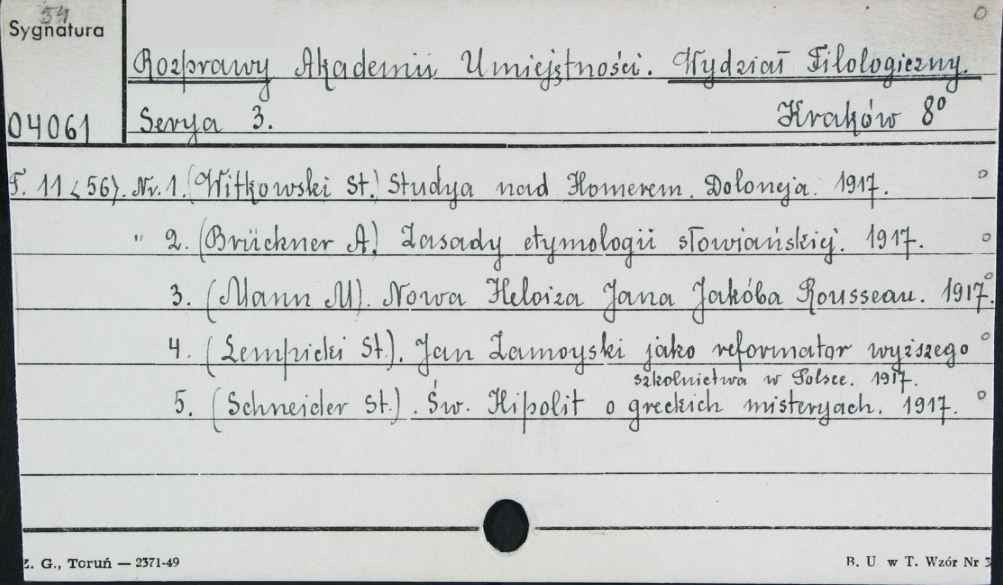 54
Sygnatura
Rozprawy Akademii Umiejętności. Wydział Filologiczny.
04061 Serya 3. Kraków 8°
T. 11 <56>. Nr. 1. (Witkowski St.) Studya nad Homerem. Doloneja. 1917.
" 2. (Brückner A.) Zasady etymologii słowiańskiej. 1917.
3. (Mann M). Nowa Heloiza Jana Jakóba Rousseau. 1917.
4. (Łempicki St.). Jan Zamoyski jako reformator wyższego
szkolnictwa w Polsce. 1917.
5. (Schneider St.). Św. Hipolit o greckich misteryach. 1917.
Z. G., Toruń — 2371-49 B. U w T. Wzór Nr 3